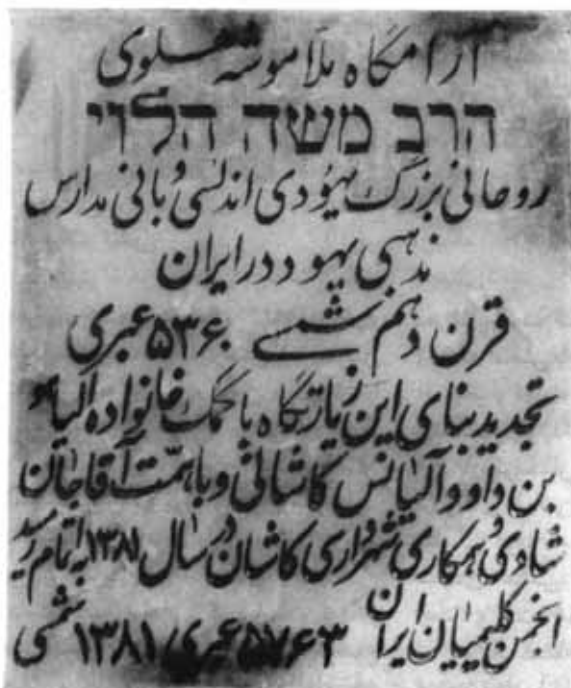 آرامگاه ملا موشه هلوی
הרב משה הלוי
روحانی بزرگ یهودی اندلسی و بانی مدارس
مذهبی یهود در ایران
قرن دهم شمسی ۵۳۶۰ عبری
تجدید بنای این زیارتگاه با کمک خانواده الیاهو
بن داوود آلیانس کاشانی و با همّت آقاجان
شادی و همکاری شهرداری کاشان در سال ۱۳۸۱ به اتمام رسید
انجمن کلیمیان ایران ۵۷۶۳ عبری / ۱۳۸۱ شمسی